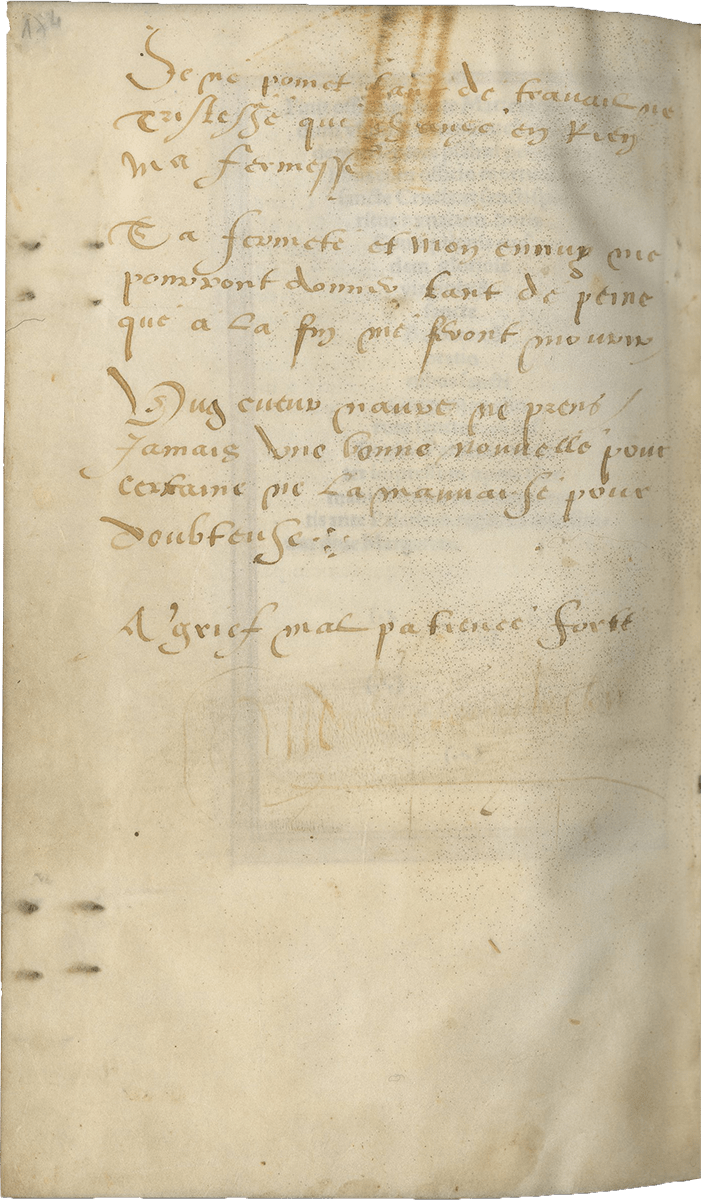 174
Je ne point tant de travail ne
Tristesse qui change en Rien
Ma fermesse
Ta fermete et mon ennuy me
pourront donner tant de peine
que a La fin me feront mourir
Ung cueur navré ne prens
Jamais une bonne nouvelle pour
certaine ne La mauvaise pour
doubteuse
A grief mal patience forte